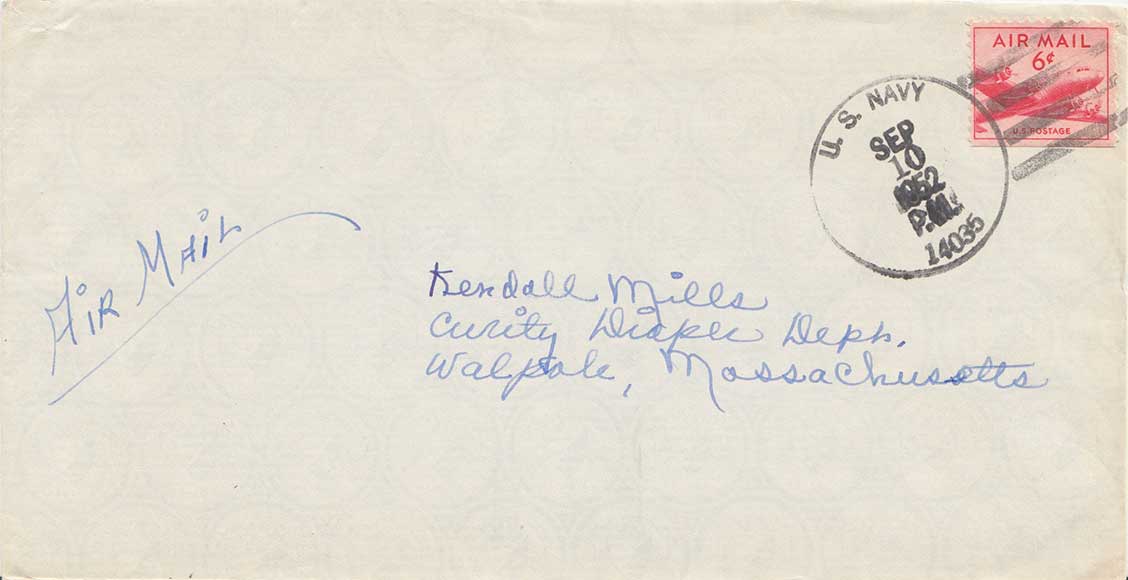 AIR MAIL
6¢
U.S. POSTAGE
U. S. NAVY
SEP
10
1952
P.M.
14035
AIR MAIL
Kendall Mills
Curity Diaper Dept.
Walpole, Massachusetts